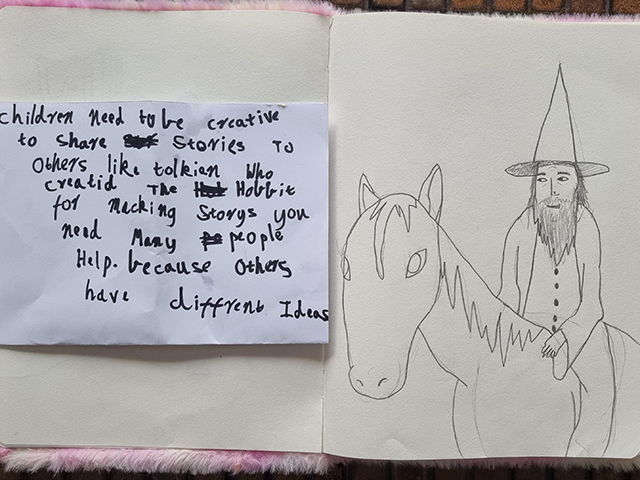 children need to be creative
to share Stories To
Others like tolkien Who
creatid The Hobbit
for macking Storys you
need Many people
Help. because Others
have diffrent Ideas